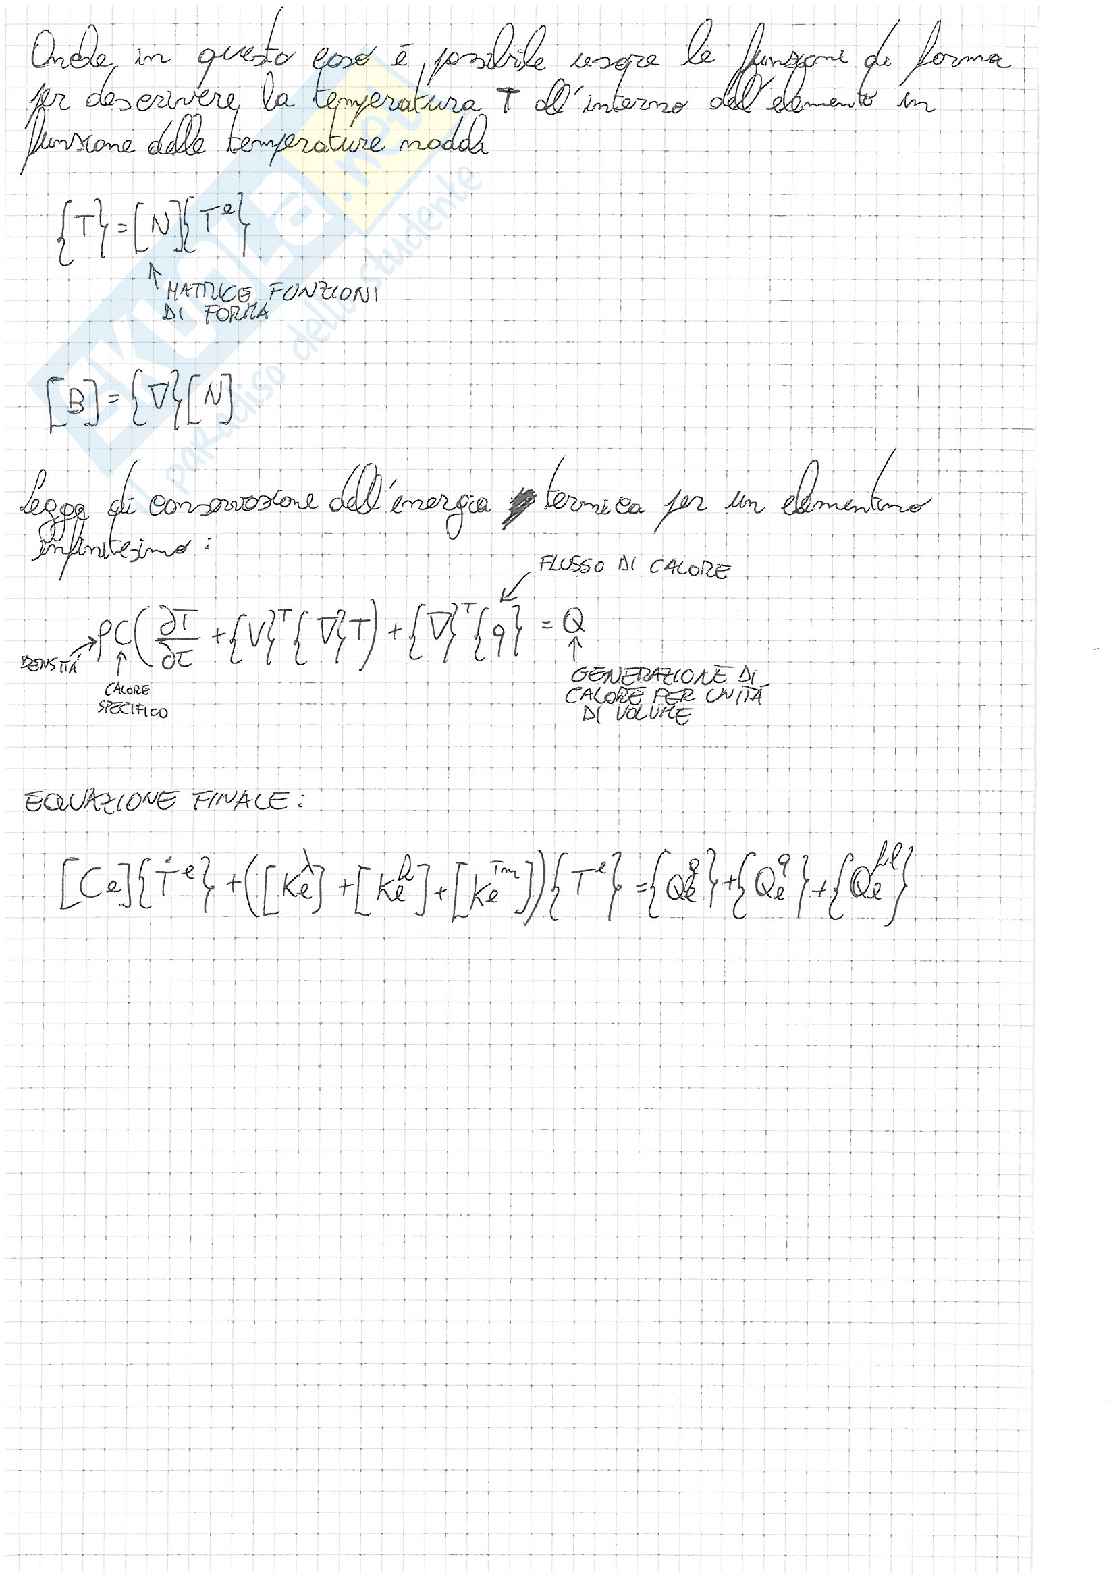 Anche in questo caso è possibile usare le funzioni di forma
per descrivere la temperatura T all'interno dell'elemento in
funzione delle temperature nodali
{T} = [N]{T^e}
MATRICE FUNZIONI
DI FORMA
[B] = {∇}[N]
Legge di conservazione dell'energia termica per un elementino
infinitesimo:
FLUSSO DI CALORE
ρC(∂T/∂τ + {V}^T{∇}T) + {∇}^T{q} = Q
DENSITÀ
CALORE
SPECIFICO
GENERAZIONE DI
CALORE PER UNITÀ
DI VOLUME
EQUAZIONE FINALE:
[Ce]{Ṫ^e} + ([Ke^λ] + [Ke^h] + [Ke^Tm]){T^e} = {Qe^g} + {Qe^q} + {Qe^hf}
SKUOLA.net
paradiso dello studente